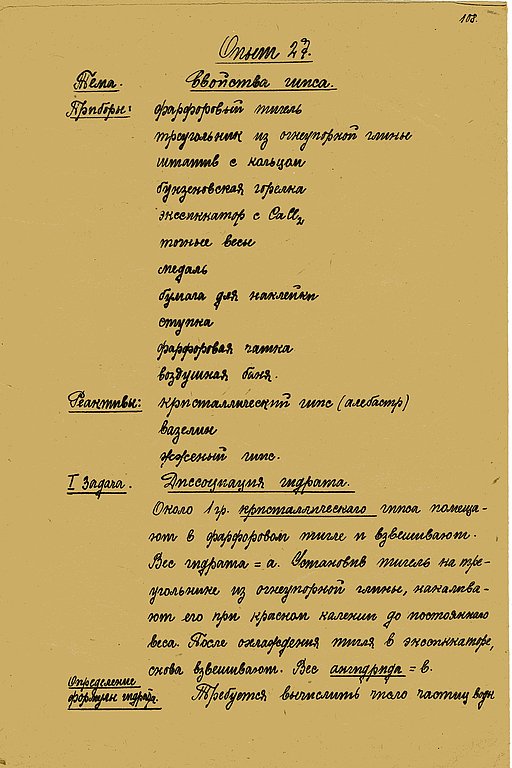 108.
Опыт 27.
Тема. Свойства гипса.
Приборы: фарфоровый тигель
треугольник из огнеупорной глины
штатив с кольцом
бунзеновская горелка
эксиккатор с CaCl₂
точные весы
медаль
бумага для наклейки
ступка
фарфоровая чашка
воздушная баня.
Реактивы: кристаллический гипс (алебастр)
вазелин
жженый гипс.
I Задача. Диссоциация гидрата.
Около 1 гр. кристаллического гипса помеща-
ют в фарфоровом тигле и взвешивают.
Вес гидрата = а. Установив тигель на тре-
угольнике из огнеупорной глины, накалива-
ют его при красном калении до постоянного
веса. После охлаждения тигля в эксиккаторе,
снова взвешивают. Вес ангидрида = в.
Определение
формулы гидрата. Требуется вычислить число частиц воды